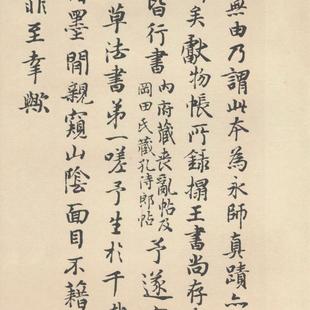 無由乃謂此本為永師真蹟
矣獻物帳所錄搨王書尚存
皆行書内府藏喪亂帖及
岡田氏藏孔侍郎帖予遂
草法書第一嗟予生於千
墨間親窺山陰面目不藉
非至幸歟